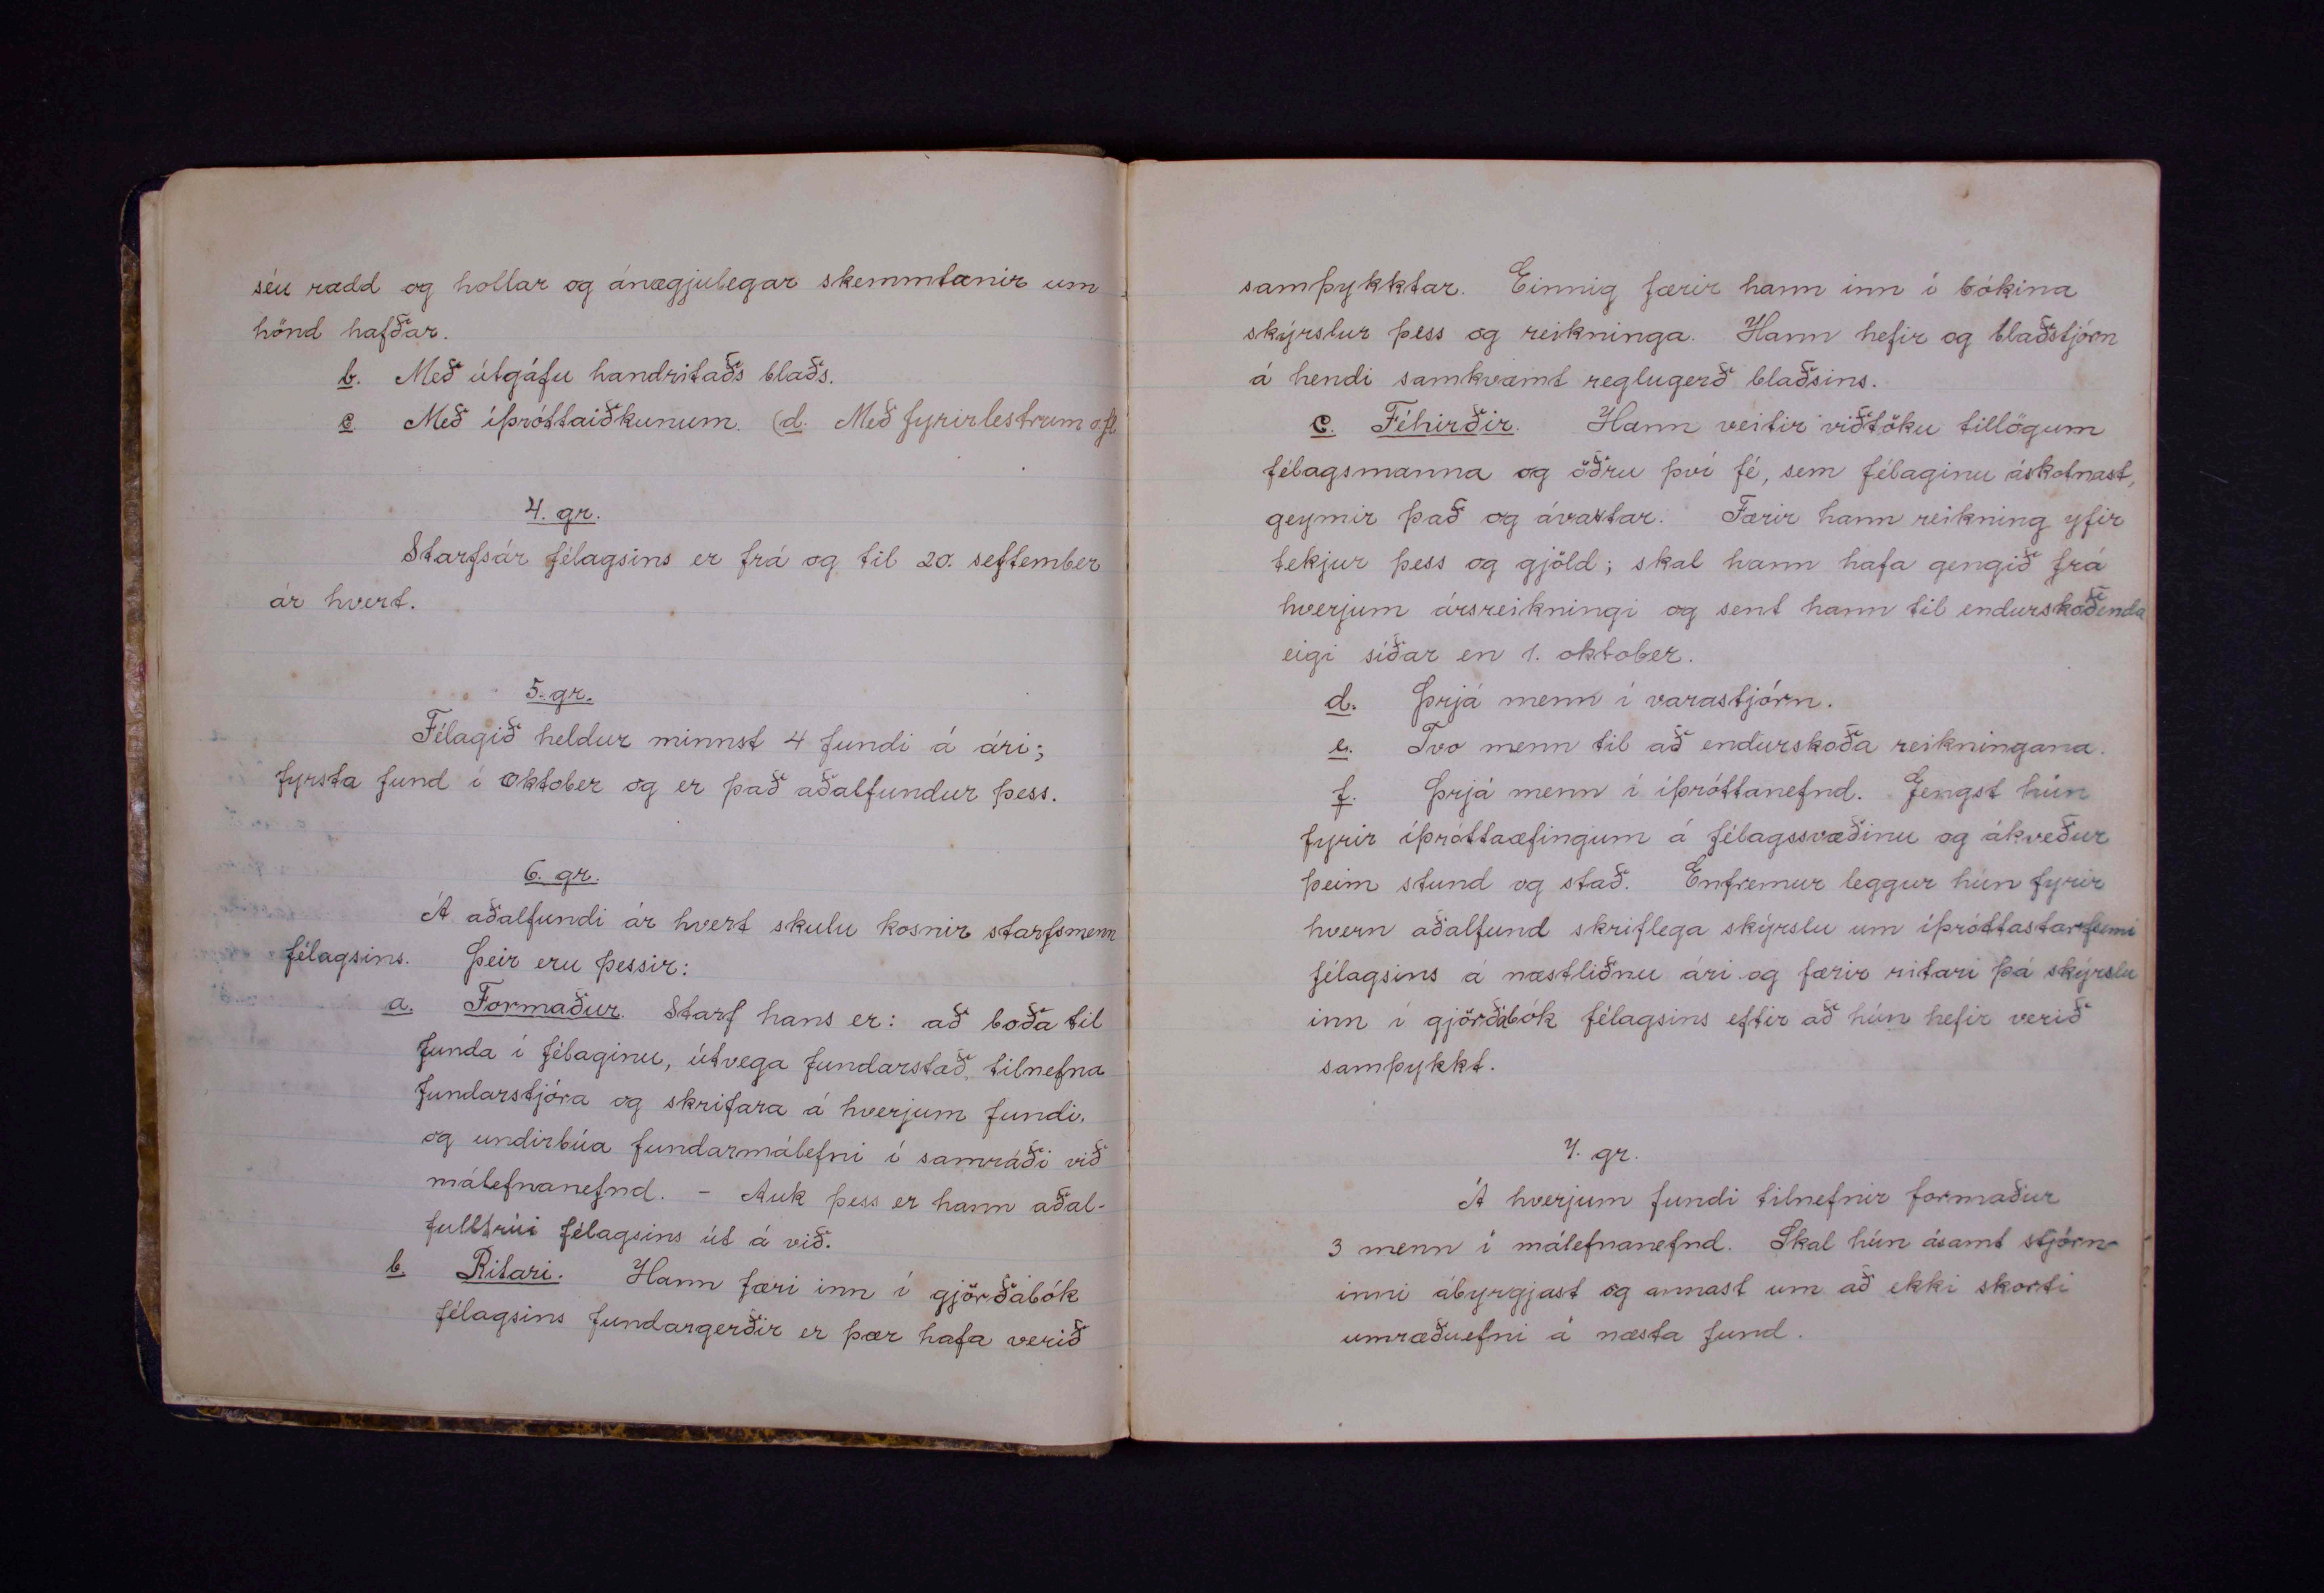 séu rædd og hollar og ánægjulegar skemmtanir um
hönd hafðar.
b. Með útgáfu handritaðs blaðs.
c Með íþróttaiðkunum. (d. Með fyrirlestrum ofl
4. gr.
Starfsár félagsins er frá og til 20. seftember
ár hvert.
5. gr.
Félagið heldur minnst 4 fundi á ári;
fyrsta fund í Oktober og er það aðalfundur þess.
6. gr.
Á aðalfundi ár hvert skulu kosnir starfsmenn
félagsins. Þeir eru þessir:
a. Formaður. Starf hans er: að boða til
funda í félaginu, útvega fundarstað, tilnefna
fundarstjóra og skrifara á hverjum fundi.
og undirbúa fundarmálefni í samráði við
málefnanefnd. - Auk þess er hann aðal-
fulltrúi félagsins út á við.
b. Ritari. Hann færi inn í gjörðabók
félagsins fundargerðir er þær hafa verið
samþykktar. Einnig færir hann inn í bókina
skýrslur þess og reikninga. Hann hefir og blaðstjórn
á hendi samkvæmt reglugerð blaðsins.
c. Féhirðir. Hann veitir viðtöku tillögum
félagsmanna og öðru því fé, sem félaginu áskotnast,
geymir það og ávaxtar. Færir hann reikning yfir
tekjur þess og gjöld; skal hann hafa gengið frá
hverjum ársreikningi og sent hann til endurskoðenda
eigi síðar en 1. oktober.
d. Þrjá menn í varastjórn.
e. Tvo menn til að endurskoða reikningana.
f. Þrjá menn í íþróttanefnd. Gengst hún
fyrir íþróttaæfingum á félagssvæðinu og ákveður
þeim stund og stað. Enfremur leggur hún fyrir
hvern aðalfund skriflega skýrslu um íþróttastarfsemi
félagsins á næstliðnu ári og færir ritari þá skýrslu
inn í gjörðabók félagsins eftir að hún hefir verið
samþykkt.
7. gr.
Á hverjum fundi tilnefnir formaður
3 menn í málefnanefnd. Skal hún ásamt stjórn-
inni ábyrgjast og annast um að ekki skorti
umræðuefni á næsta fund.